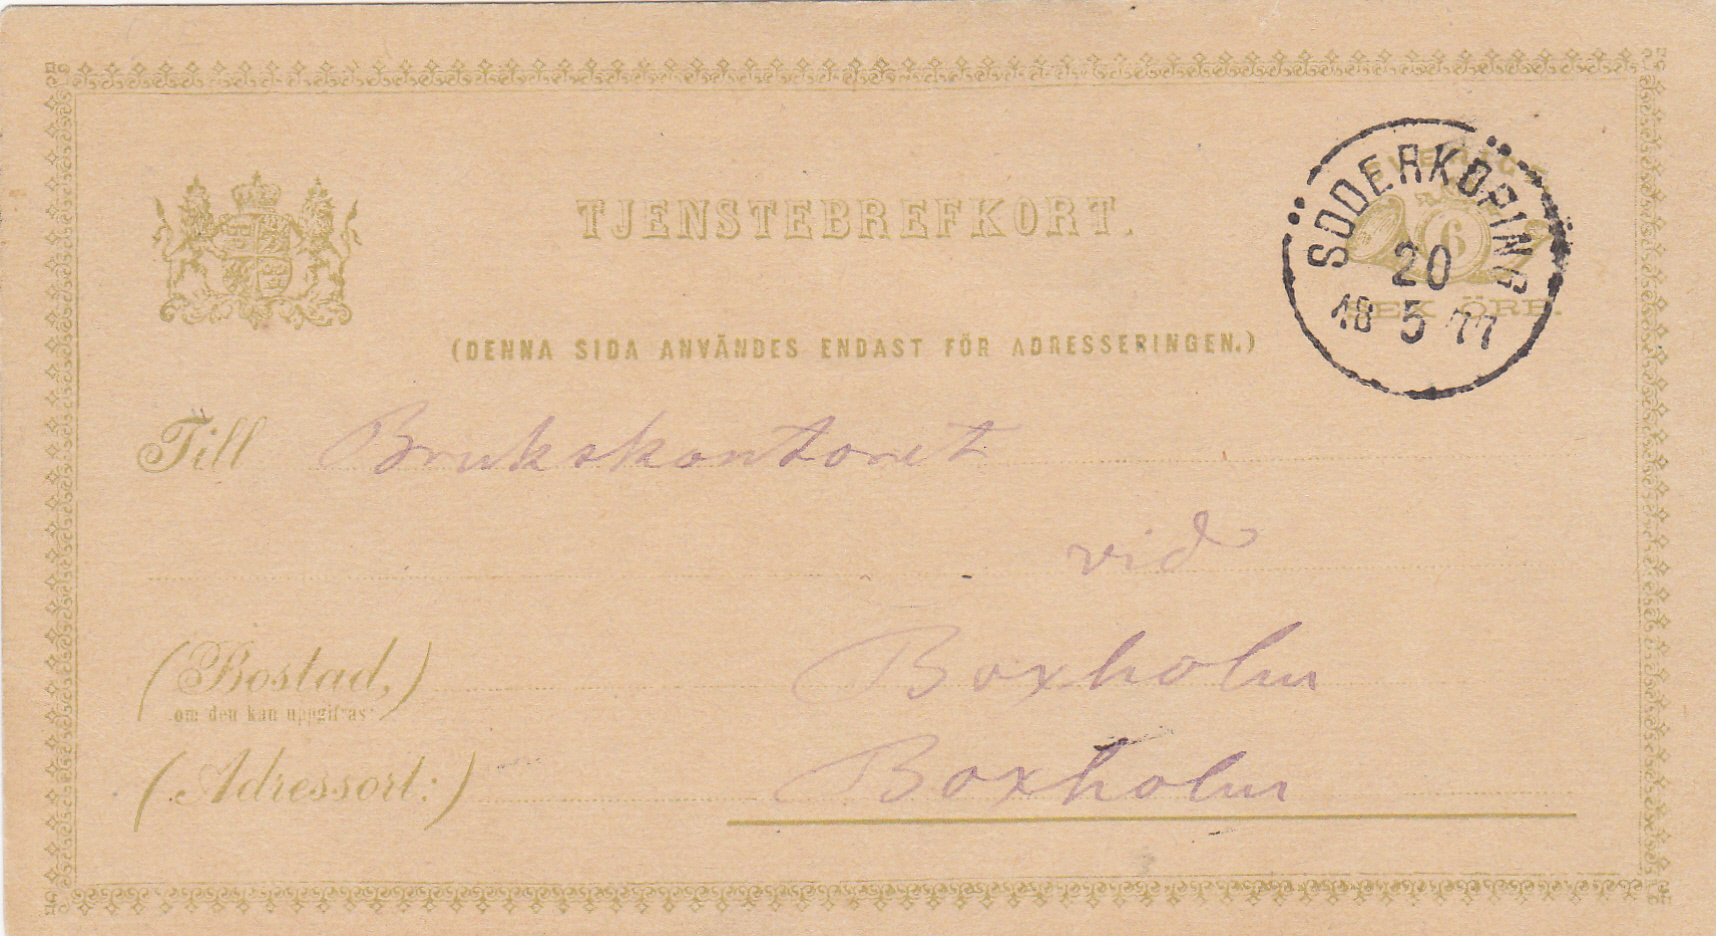 TJENSTEBREFKORT.
SVERIGE
6
SEX ÖRE.
SÖDERKÖPING
20
18 5 77
(DENNA SIDA ANVÄNDES ENDAST FÖR ADRESSERINGEN.)
Till Brukskontoret
vid
(Bostad,) Boxholm
om den kan uppgifvas
(Adressort:) Boxholm